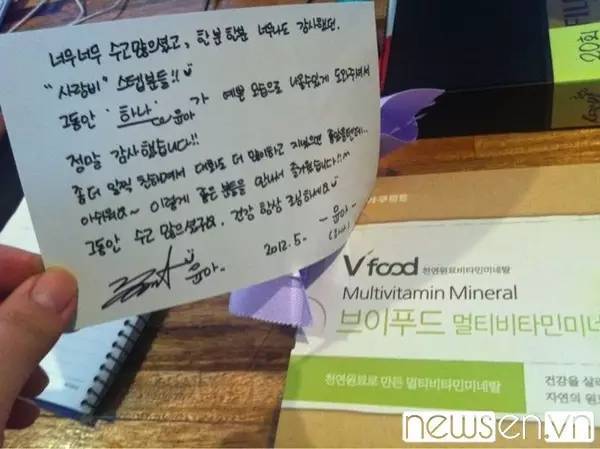 너무너무 수고많으셨고, 한분한분 너무나도 감사했던.
"사랑비" 스텝분들!!
그동안 '하나' 윤아가 예쁜 모습으로 나올수있게 도와주셔서
정말 감사했습니다!!
좀더 일찍 친해져서 대화도 더 많이하고 지냈으면 좋았을텐데..
아쉬워요~ 이렇게 좋은 분들을 만나서 즐거웠습니다!!
그동안 수고 많으셨구요. 건강 항상 조심하세요
윤아.
2012. 5. - 윤아 -
(하나)
20회
Vfood 천연원료비타민미네랄
Multivitamin Mineral
브이푸드 멀티비타민미네
천연원료로 만든 멀티비타민미네랄
건강을 살리
자연의 원
newsen.vn